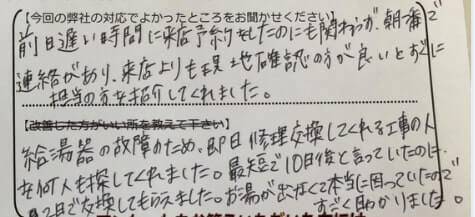 【今回の弊社の対応でよかったところをお聞かせください】
前日遅い時間に来店予約をしたのにも関わらず、朝一番で
連絡があり、来店よりも現地確認の方が良いとすぐに
担当の方を紹介してくれました。
【改善した方がいい所を教えて下さい】
給湯器の故障のため、即日修理交換してくれる工事の人
を何人も探してくれました。最短で10日後と言っていたのに、
2日で交換してもらえました。お湯が出なくて本当に困っていたので
すごく助かりました。